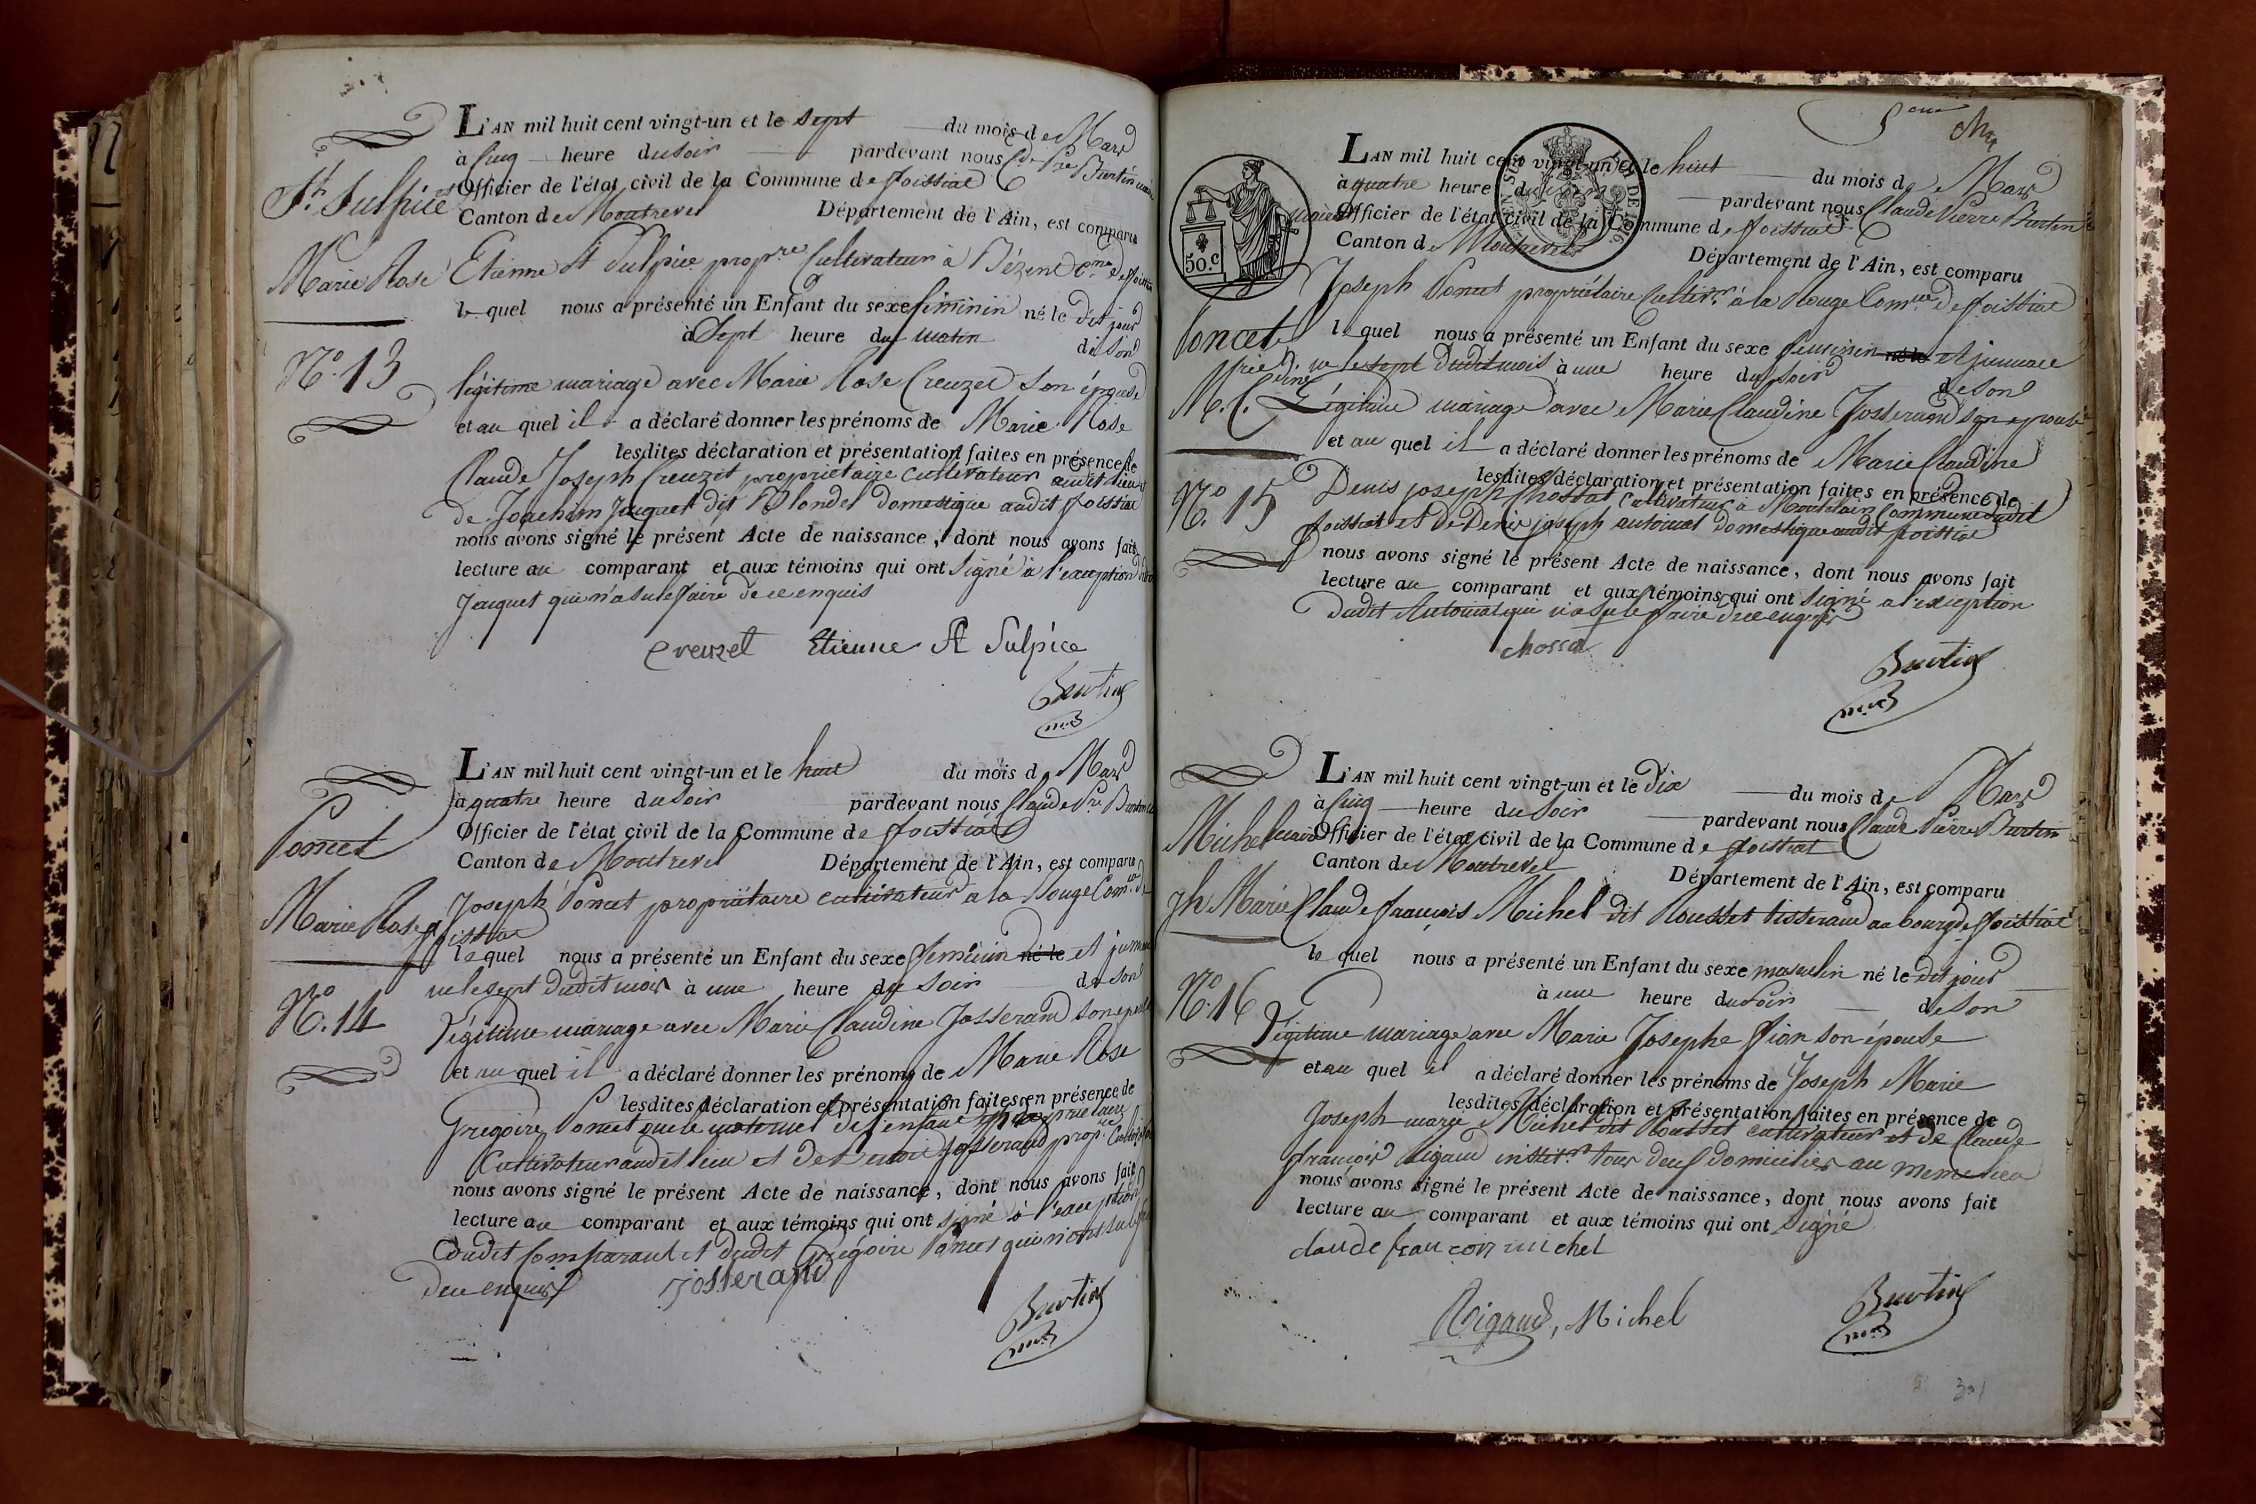 St Sulpice
Marie Rose
No. 13
L'AN mil huit cent vingt-un et le sept du mois de Mars
à cinq heure du soir pardevant nous Cde Pre Burtin maire
Officier de l'état civil de la Commune de foissiat
Canton de Montrevel Département de l'Ain, est comparu
Etienne St Sulpice propre. Cultivateur à Bézent Cne de foissiat
le quel nous a présenté un Enfant du sexe féminin né le dit jour
à sept heure du matin de son
légitime mariage avec Marie Rose Creuzet son épouse
et au quel il a déclaré donner les prénoms de Marie Rose
lesdites déclaration et présentation faites en présence de
Claude Joseph Creuzet propriétaire cultivateur audit lieu et
de Joachim Jacquet dit Blondel domestique audit foissiat
nous avons signé le présent Acte de naissance, dont nous avons fait
lecture au comparant et aux témoins qui ont signé à l'exception dudit
Jacquet qui n'a su le faire de ce enquis
creuzet Etienne St Sulpice
Burtin
Poncet
Marie Rose
No. 14
L'AN mil huit cent vingt-un et le huit du mois de Mars
à quatre heure du soir pardevant nous Claude Pre Burtin
Officier de l'état civil de la Commune de foissiat
Canton de Montrevel Département de l'Ain, est comparu
Joseph Poncet propriétaire cultivateur a la Rouge Comne de
foissiat
le quel nous a présenté un Enfant du sexe féminin né le et jumelle
née le sept dudit mois à une heure du soir de son
légitime mariage avec Marie Claudine Josserand son épouse
et au quel il a déclaré donner les prénoms de Marie Rose
lesdites déclaration et présentation faites en présence de
Gregoire Poncet oncle maternel de l'enfant propriétaire
Cultivateur audit lieu et de Josserand propre. Cultivateur
nous avons signé le présent Acte de naissance, dont nous avons fait
lecture au comparant et aux témoins qui ont signé à l'exception
dudit Comparant et dudit Grégoire Poncet qui n'ont su le faire
de ce enquis
Josserand
Burtin
5eme
50.c
Poncet
M. C.
No. 15
L'AN mil huit cent vingt-un et le huit du mois de Mars
à quatre heure du soir pardevant nous Claude Pierre Burtin
maire Officier de l'état civil de la Commune de foissiat
Canton de Montrevel Département de l'Ain, est comparu
Joseph Poncet propriétaire Cultivr. à la Rouge Comne de foissiat
le quel nous a présenté un Enfant du sexe feminin né le et jumelle
née le sept dudit mois à une heure du soir de son
Légitime mariage avec Marie Claudine Josserand son epouse
et au quel il a déclaré donner les prénoms de Marie Claudine
lesdites déclaration et présentation faites en présence de
Denis joseph Chossat Cultivateur à Commune dudit
foissiat et de Denis joseph automat domestique audit foissiat
nous avons signé le présent Acte de naissance, dont nous avons fait
lecture au comparant et aux témoins qui ont signé a l'exception
dudit Automat qui n'a su le faire de ce enquis
chossat
Burtin
Michel
Jh Marie
No. 16
L'AN mil huit cent vingt-un et le dix du mois de Mars
à cinq heure du soir pardevant nous Claude Pierre Burtin
maire Officier de l'état civil de la Commune de foissiat
Canton de Montrevel Département de l'Ain, est comparu
Claude françois Michel dit Rousset tisserand au bourg de foissiat
le quel nous a présenté un Enfant du sexe masculin né le dit jour
à une heure du soir de son
légitime mariage avec Marie Josephe fion son épouse
et au quel il a déclaré donner les prénoms de Joseph Marie
lesdites déclaration et présentation faites en présence de
Joseph marie Michel dit Rousset cultivateur et de Claude
françois Rigaud institr. tous deux domiciliés au meme lieu
nous avons signé le présent Acte de naissance, dont nous avons fait
lecture au comparant et aux témoins qui ont signé
claude francois michel
Rigaud, Michel
Burtin
301